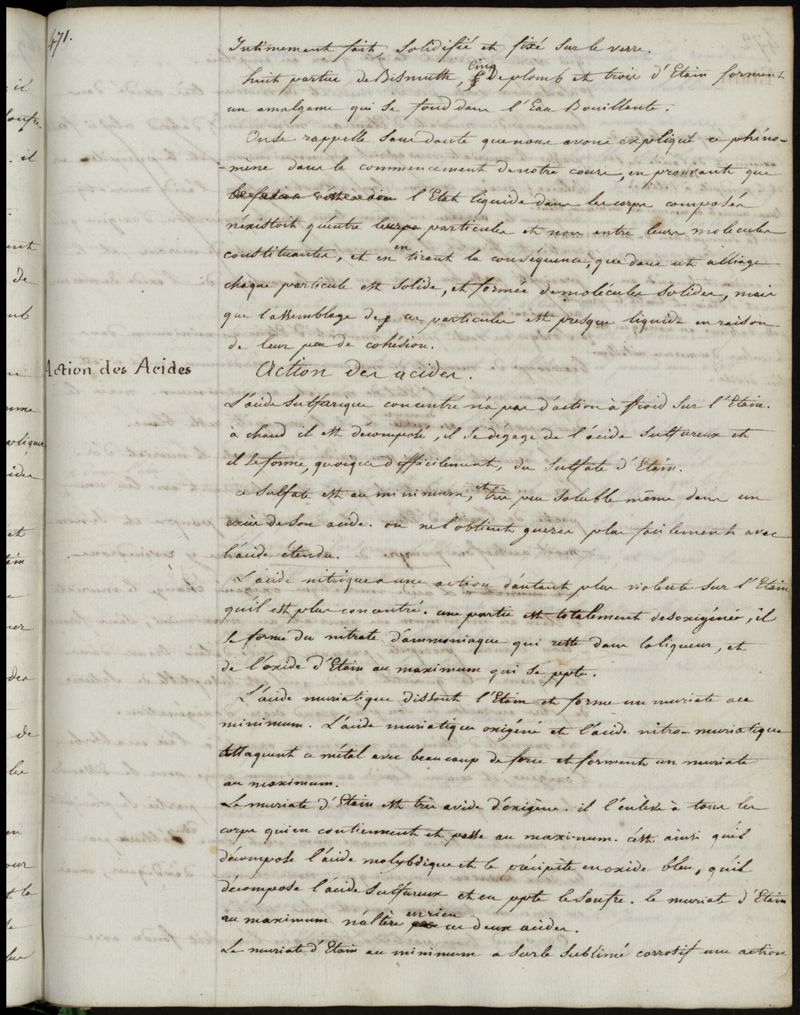 471.
Intimement fait, solidifié et fixé sur le verre.
huit parties de Bismuth, Cinq de plomb et trois d'Etain forment
un amalgame qui se fond dans l'Eau Bouillante.
On se rappelle sans doute que nous avons expliqué ce phéno-
-mène dans le commencement de notre cours, en prouvant que
l'Etat liquide dans les corps composés
n'existoit qu'entre leurs particules et non entre leurs molécules
constituantes, et en en tirant la conséquence, que dans cet alliage
chaque particule est solide, et formée de molécules solides, mais
que l'assemblage de ces particules est presque liquide en raison
de leur peu de cohésion.
Action des Acides
Action des acides.
L'acide sulfurique concentré n'a pas d'action à froid sur l'Etain.
à chaud il est décomposé, il se dégage de l'acide sulfureux et
il se forme, quoique difficilement, du sulfate d'Etain.
ce sulfate est au minimum, et très peu soluble même dans un
excès de son acide. on ne l'obtient gueres plus facilement avec
l'acide étendu.
L'acide nitrique a une action d'autant plus violente sur l'Etain
qu'il est plus concentré. une partie est totalement desoxigénée, il
se forme du nitrate d'ammoniaque qui reste dans la liqueur, et
de l'oxide d'Etain au maximum qui se ppte.
L'acide muriatique dissout l'Etain et forme un muriate au
minimum. L'acide muriatique oxigéné et l'acide nitro-muriatique
attaquent ce métal avec beaucoup de force et forment un muriate
au maximum.
Le muriate d'Etain est très avide d'oxigène. il l'enlève à tous les
corps qui en contiennent et passe au maximum. c'est ainsi qu'il
décompose l'acide molybdique et le précipite en oxide bleu, qu'il
décompose l'acide sulfureux et en ppte le soufre. le muriate d'Etain
au maximum n'altère en rien ces deux acides.
Le muriate d'Etain au minimum a sur le sublimé corrosif une action